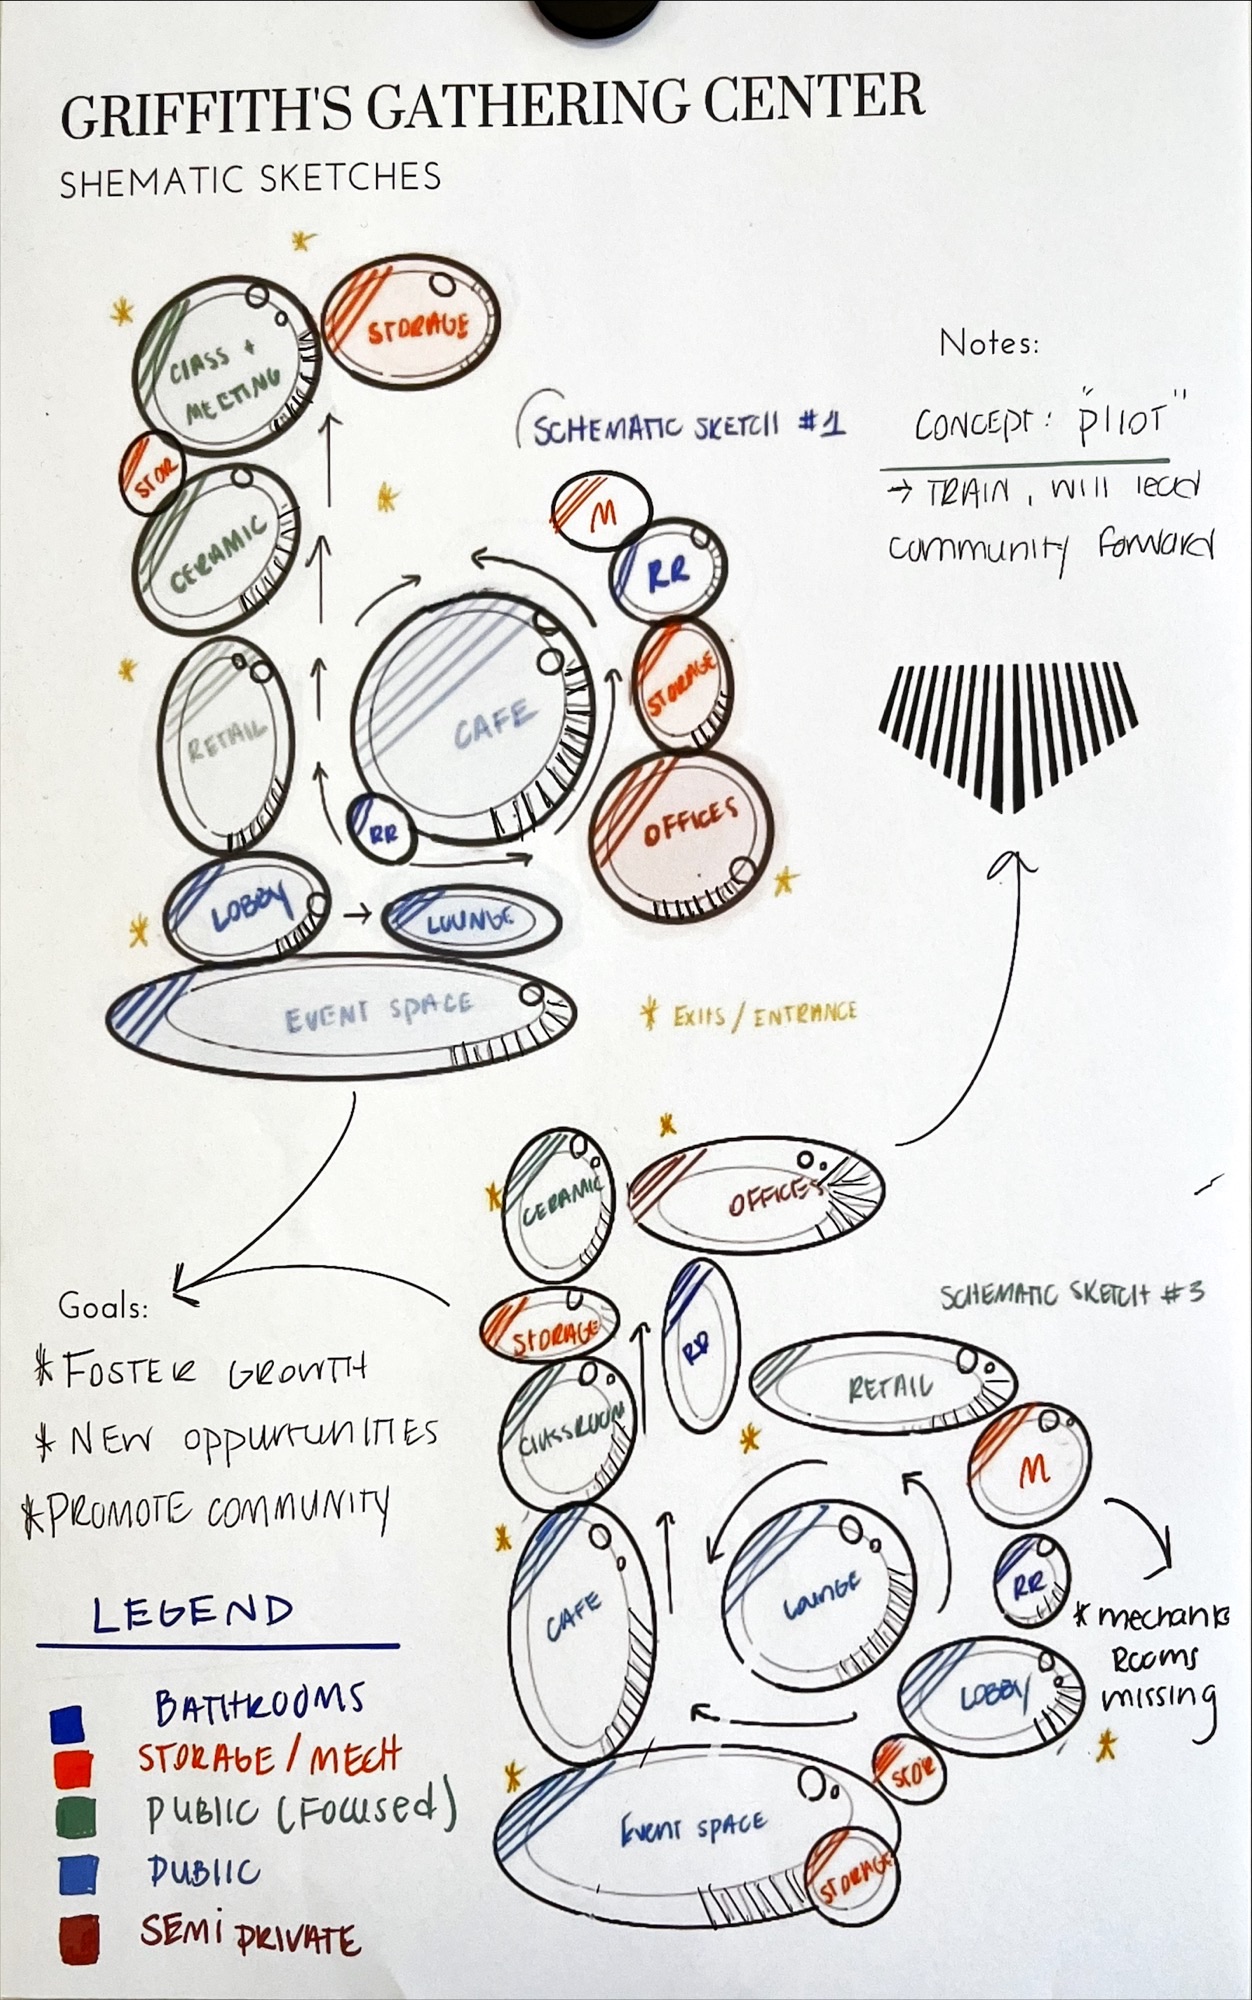 GRIFFITH'S GATHERING CENTER
SHEMATIC SKETCHES
CLASS +
MEETING
STORAGE
STOR
CERAMIC
RETAIL
LOBBY
LOUNGE
EVENT SPACE
CAFE
RR
M
RR
STORAGE
OFFICES
SCHEMATIC SKETCH #1
* EXITS / ENTRANCE
Notes:
CONCEPT: "PILOT"
→ TRAIN, will lead
community forward
CERAMIC
OFFICES
STORAGE
RR
CLASSROOM
RETAIL
SCHEMATIC SKETCH #3
M
CAFE
LOUNGE
RR
* mechanic
ROOMS
missing
LOBBY
STOR
EVENT SPACE
STORAGE
Goals:
* FOSTER GROWTH
* NEW OPPURTUNITIES
* PROMOTE COMMUNITY
LEGEND
BATHROOMS
STORAGE / MECH
PUBLIC (FOCUSED)
PUBLIC
SEMI PRIVATE